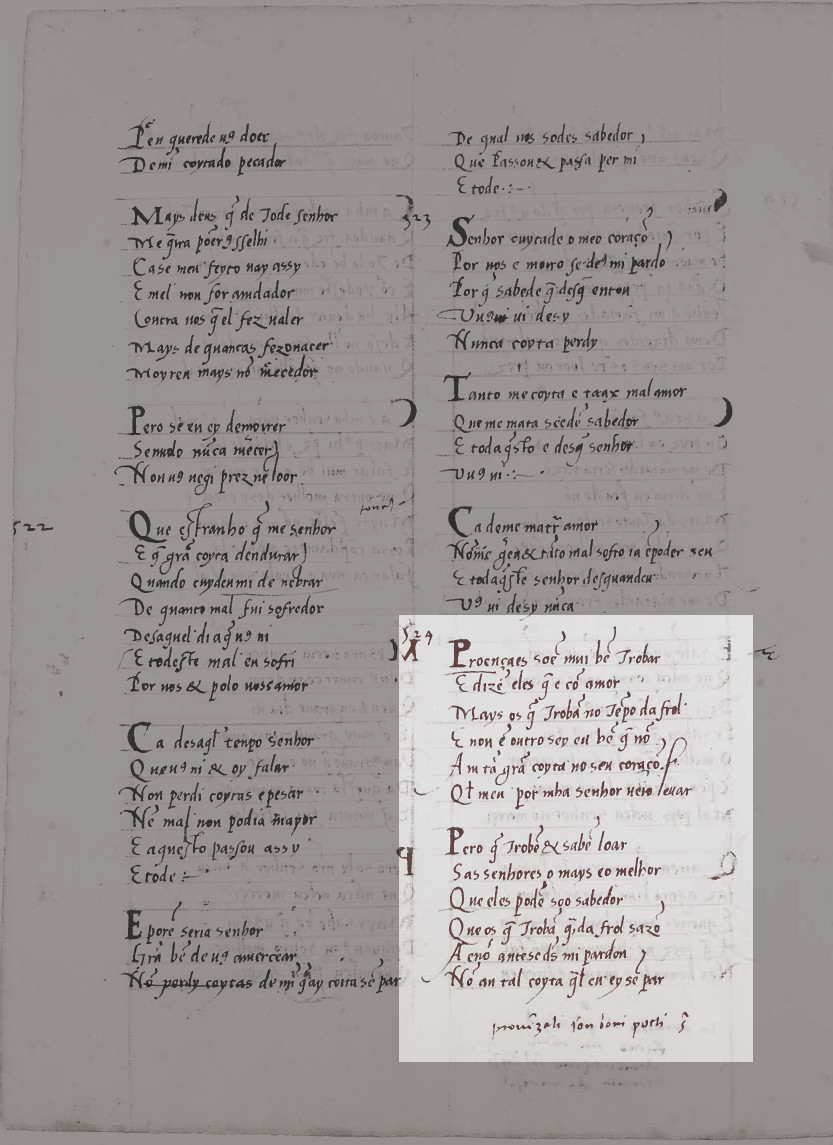 Pen querede uꝯ doer
De mī coytado pecador
Mays deus q̄ de Tode senhor
Me q̄ira põer
Ca se meu feyto uay assy
E mel non for aiudador
Contra uos q̄ el fez ualer
Mays de quantas fezo nacer
Moyrer mays nō m̄ecedor
Pero se eu ey demorrer
Sen uolo nūca m̄ecer
Non uꝯ uegi prez nē loor
522
Que estranho q̄ me senhor
E q̄ grā coyta dendurar
Quando cuyden mi de nēbrar
De quanto mal fui sofredor
Des aquel di a q̄ uꝯ ui
E todeste mal eu sofri
Por uos & polo uoss amor
Ca des aql̄ tenpo senhor
Que uꝯ ui & oy falar
Non perdi coytas e pesar
Nē mal non podia mayor
E aquesto passou assy
E tode
E porē seria senhor
Grā bē de uꝯ amercear
Nō perdy coytas de mī q̄ ey coita sē par
De qual uos sodes sabedor
Que passou & passa per mi
E tode
523
Senhor cuytade o meo coraçō
Por uos e moiro se deꝯ mi pardō
Por q̄ sabede q̄ desq̄ enton
Uꝯ ui desy
Nunca coyta perdy
Tanto me coyta e mal amor
Que me mata seede sabedor
E tod aq̄sto e desq̄ senhor
Uꝯ ui
Ca de me matar amor
e tāto mal sofro ia e poder seu
E tod aq̄ste senhor des quand eu
Uꝯ ui desy nūca
524
Proençaes soē mui bē Trobar
E dizē eles q̄ e cō amor
Mays os q̄ Trobā no Tēpo da frol
E non ē outro sey eu bē q̄ nō
Am tā grā coyta no seu coraçō
Ql̄ m eu por mha senhor ueio leuar
Pero q̄ Trobē & sabē loar
Sas senhores o mays e o melhor
Que eles podē soo sabedor
Que os q̄ Trobā q̄ da frol sazō
A e nō ante se ds̄ mi pardon
Nō an tal coyta ql̄ eu ey sē par
prouēzali son boni poeti